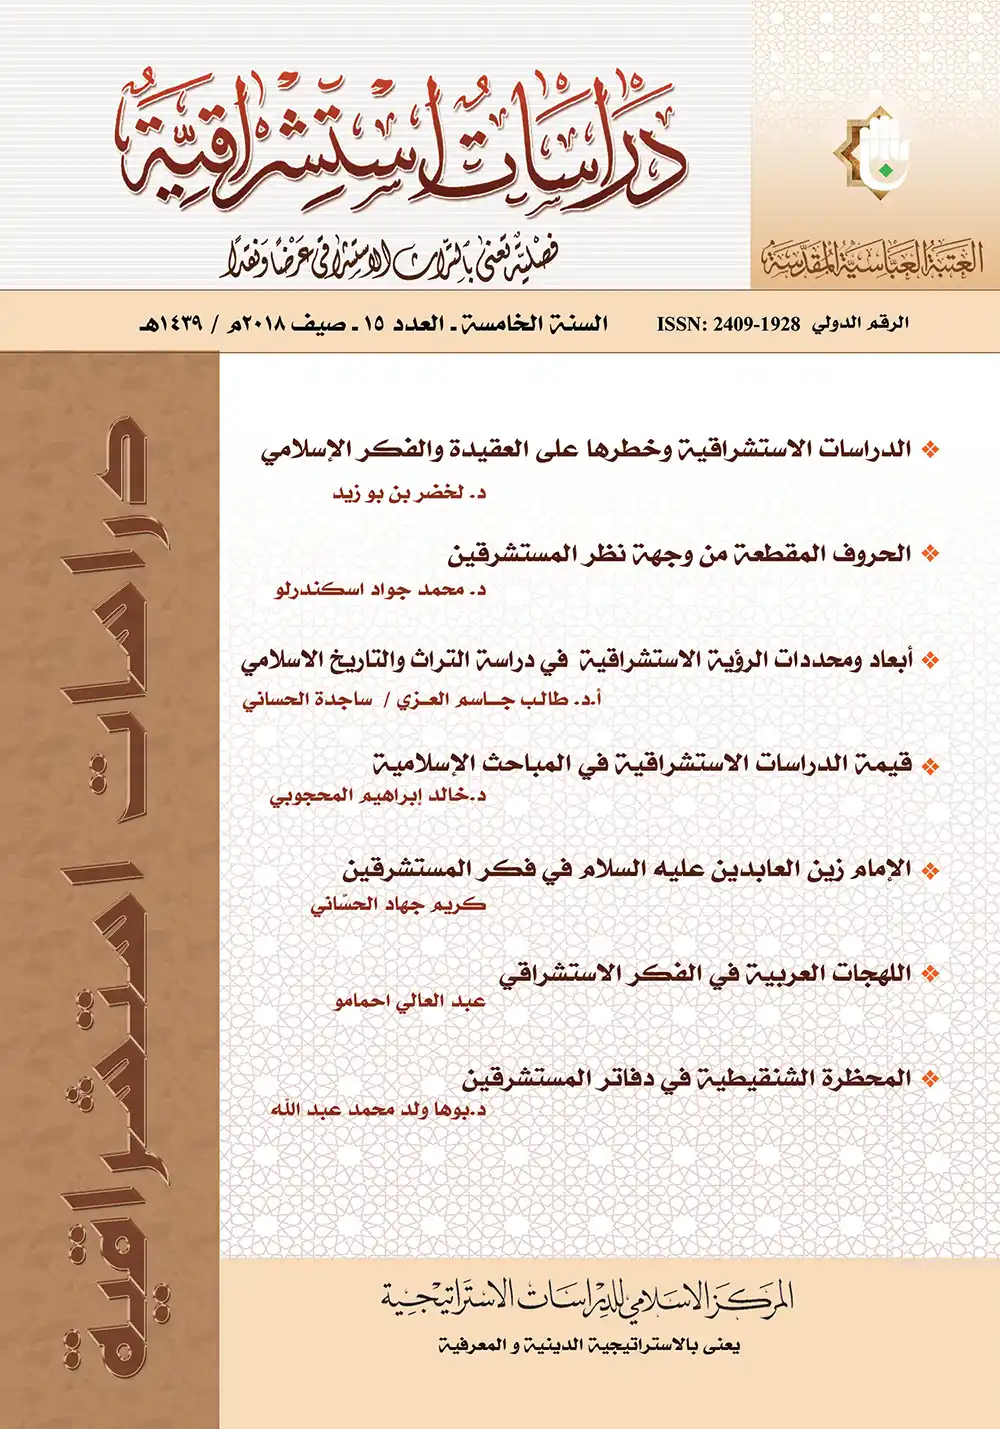 دراسات استشراقية
فصلية تعنى بالتراث الاستشراقي عرضًا ونقدًا
العتبة العباسية المقدسة
الرقم الدولي ISSN: 2409-1928 السنة الخامسة ـ العدد ١٥ ـ صيف ٢٠١٨م / ١٤٣٩هـ
الدراسات الاستشراقية وخطرها على العقيدة والفكر الإسلامي
د. لخضر بن بو زيد
الحروف المقطعة من وجهة نظر المستشرقين
د. محمد جواد اسكندرلو
أبعاد ومحددات الرؤية الاستشراقية في دراسة التراث والتاريخ الاسلامي
أ.د. طالب جــاسم العــزي / ساجدة الحساني
قيمة الدراسات الاستشراقية في المباحث الإسلامية
د.خالد إبراهيم المحجوبي
الإمام زين العابدين عليه السلام في فكر المستشرقين
كريم جهاد الحسّاني
اللهجات العربية في الفكر الاستشراقي
عبد العالي احمامو
المحظرة الشنقيطية في دفاتر المستشرقين
د.بوها ولد محمد عبد الله
دراسات استشراقية
المركز الاسلامي للدراسات الاستراتيجية
يعنى بالاستراتيجية الدينية و المعرفية